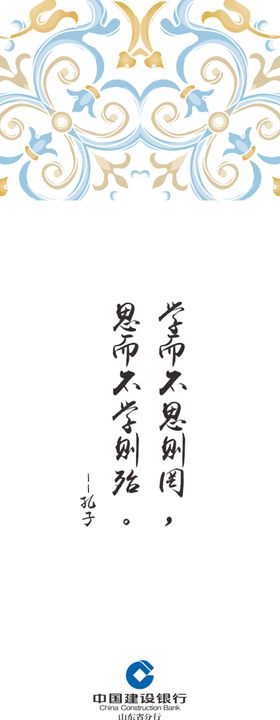 学而不思则罔，
思而不学则殆。
——孔子
中国建设银行
China Construction Bank
山东省分行